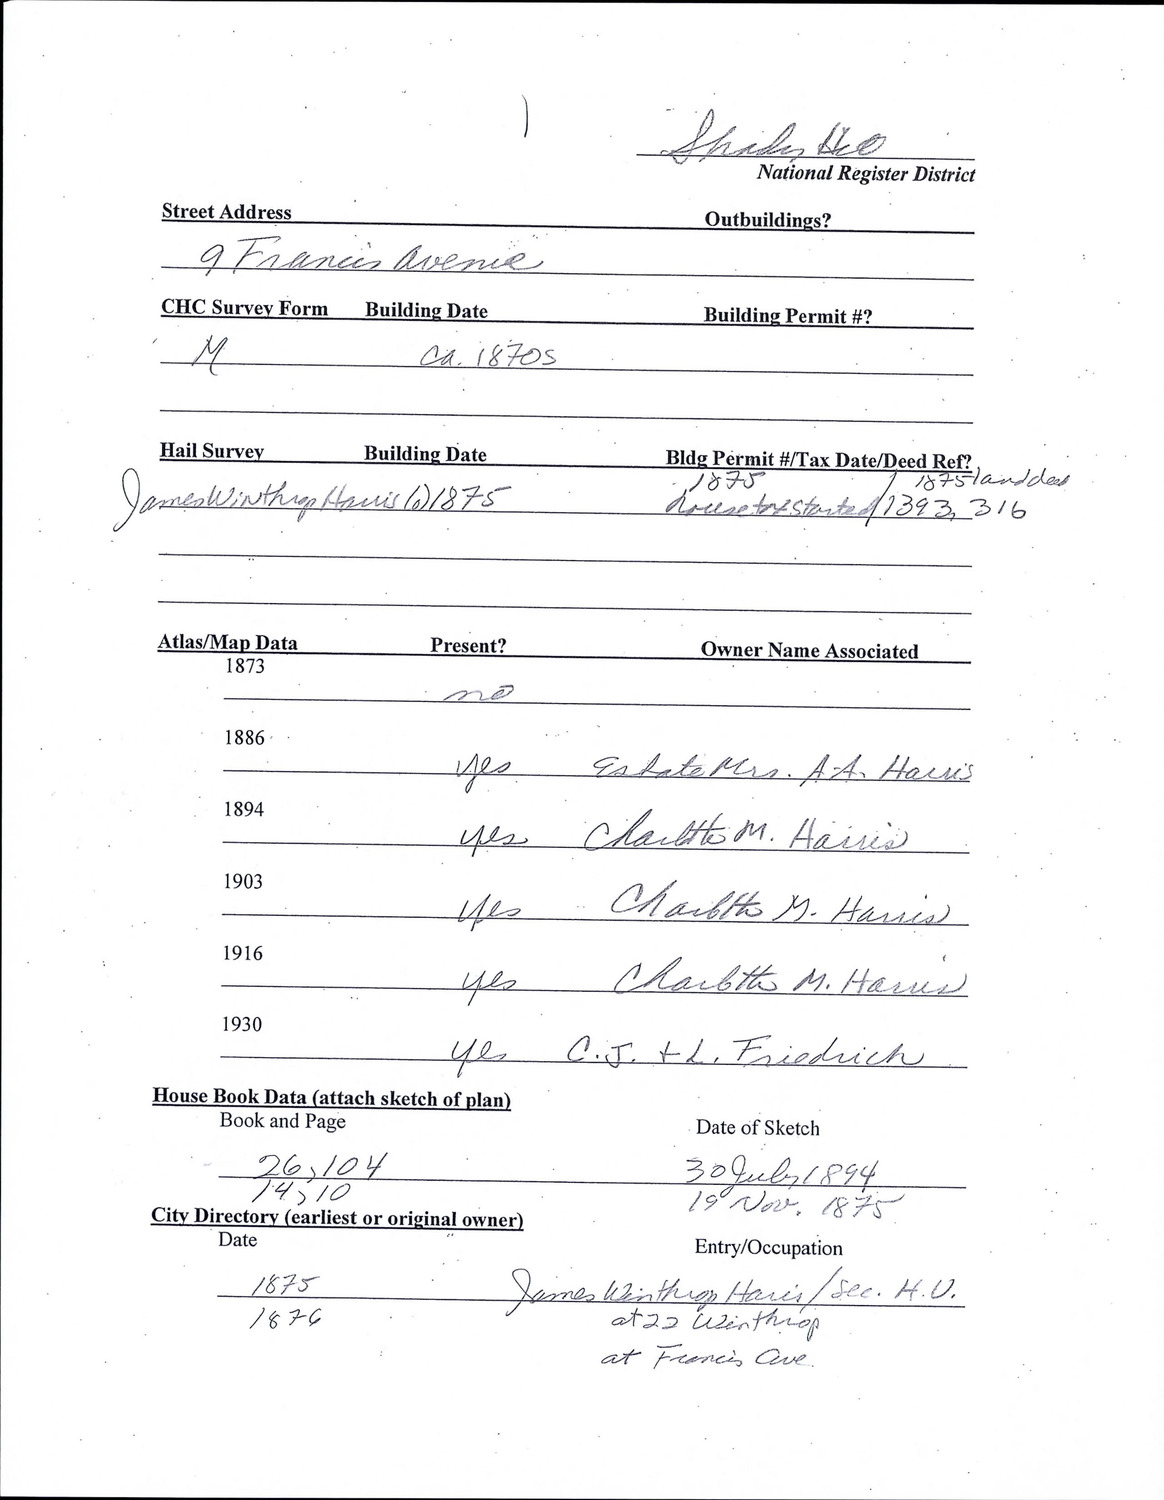 Shady Hill
National Register District
Street Address Outbuildings?
9 Francis Avenue
CHC Survey Form Building Date Building Permit #?
M ca. 1870s
Hail Survey Building Date Bldg Permit #/Tax Date/Deed Ref?
1875 / 1875 land deed
James Winthrop Harris (o) 1875 house tax started / 1393, 316
Atlas/Map Data Present? Owner Name Associated
1873
no
1886
yes Estate Mrs. A.A. Harris
1894
yes Charlotte M. Harris
1903
yes Charlotte M. Harris
1916
yes Charlotte M. Harris
1930
yes C.J. + L. Friedrich
House Book Data (attach sketch of plan)
Book and Page Date of Sketch
26, 104 30 July 1894
14, 10 19 Nov. 1875
City Directory (earliest or original owner)
Date Entry/Occupation
1875 James Winthrop Harris / Sec. H.U.
1876 at 22 Winthrop
at Francis Ave.